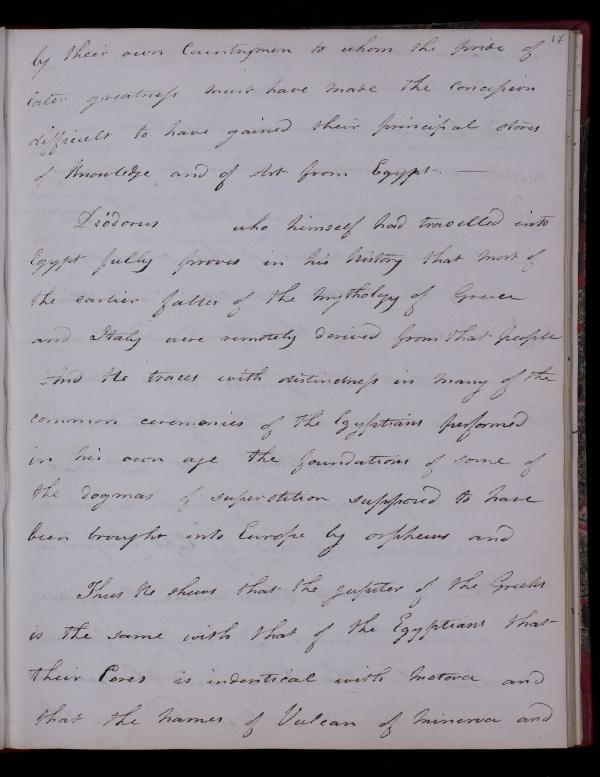 17
by their own Countrymen to whom the pride of
later greatness must have made the Concession
difficult to have gained their principal stores
of Knowledge and of Art from Egypt. —
Diódorus who himself had travelled into
Egypt fully proves in his history that most of
the earlier fables of the Mythology of Greece
and Italy were remotely derived from that people
And He traces with distinctness in many of the
common ceremonies of the Egyptians performed
in his own age the foundations of some of
the dogmas of superstition supposed to have
been brought into Europe by orpheus and
Thus He shews that the jupiter of the Greeks
is the same with that of the Egyptians that
their Ceres is indentical with and
that the names of Vulcan of minerva and